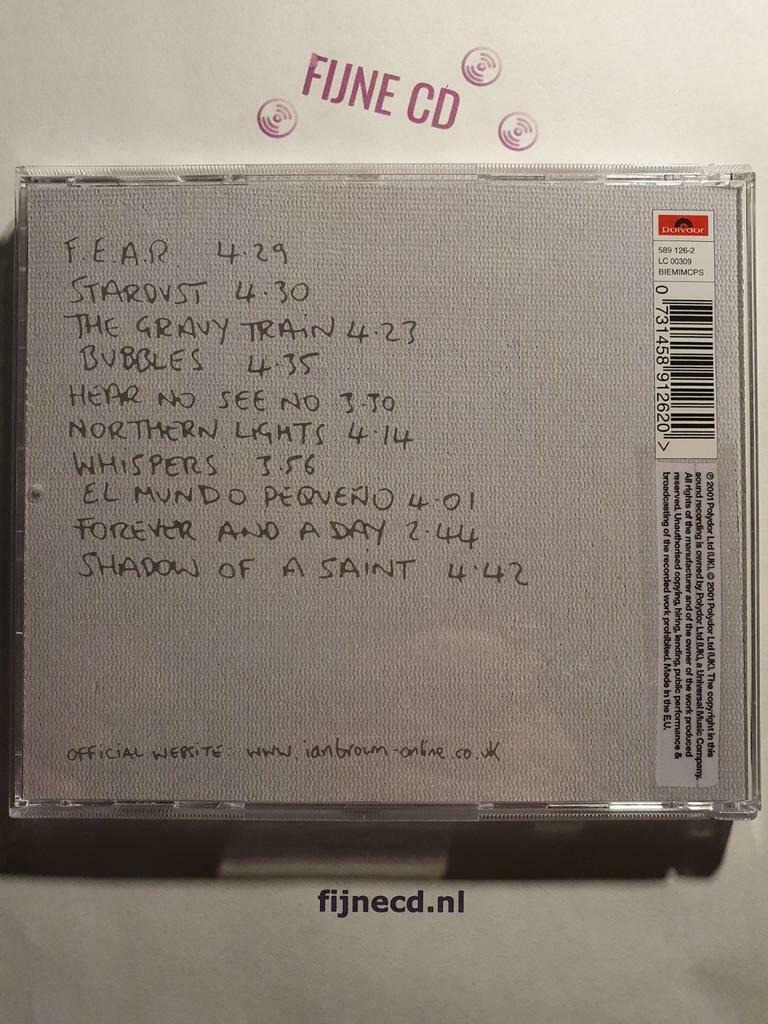 FIJNE CD
F.E.A.R. 4.29
STARDUST 4.30
THE GRAVY TRAIN 4.23
BUBBLES 4.35
HEAR NO SEE NO 3.30
NORTHERN LIGHTS 4.14
WHISPERS 3.56
EL MUNDO PEQUEÑO 4.01
FOREVER AND A DAY 2.44
SHADOW OF A SAINT 4.42
OFFICIAL WEBSITE: www.ianbrown-online.co.uk
Polydor
589 126-2
LC 00309
BIEM/MCPS
0 731458 912620 >
℗ 2001 Polydor Ltd (UK). © 2001 Polydor Ltd (UK). The copyright in this
sound recording is owned by Polydor Ltd (UK), a Universal Music Company.
All rights of the manufacturer and of the owner of the work produced
reserved. Unauthorised copying, hiring, lending, public performance &
broadcasting of the recorded work prohibited. Made in the E.U.
fijnecd.nl